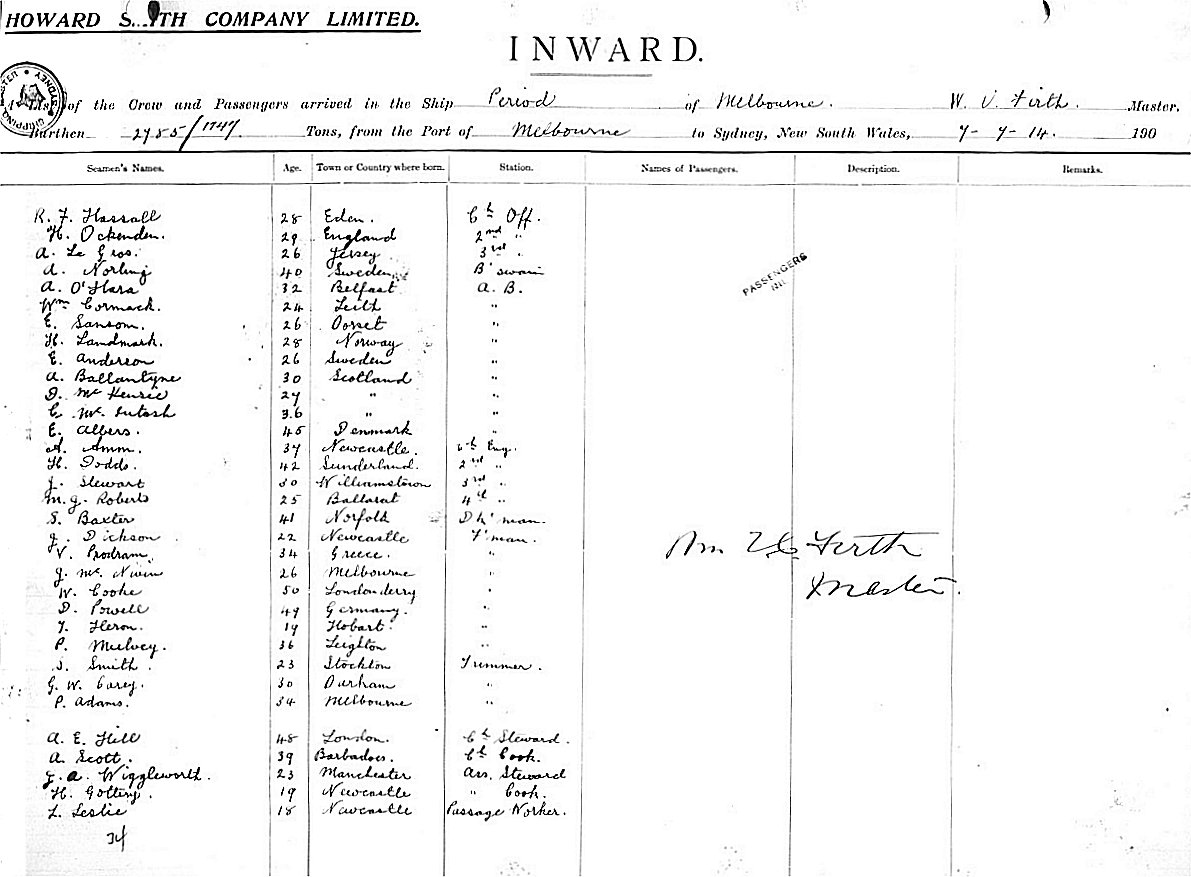 HOWARD S TH COMPANY LIMITED.
INWARD.
A List of the Crew and Passengers arrived in the Ship Period of Melbourne. W. V. Firth. Master,
Burthen 2955/1747 Tons, from the Port of Melbourne to Sydney, New South Wales, 7-7-14. 190
Seamen's Names. Age. Town or Country where born. Station. Names of Passengers. Description. Remarks.
R. F. Hassall 28 Eden. Ch Off.
H. Ockenden. 29 England 2nd "
A. Le Gros. 26 Jersey 3rd "
A. Norling 40 Sweden B'swain
PASSENGERS
NIL
A. O'Hara 32 Belfast A. B.
Wm Cormack. 24 Leith "
E. Sansom. 26 Dorset "
H. Landmark. 28 Norway "
E. Anderson 26 Sweden "
A. Ballantyne 30 Scotland "
D. McKenzie 27 " "
C. McIntosh 36 " "
E. Albers. 45 Denmark "
A. Amm. 37 Newcastle. Ch Eng.
H. Dodds. 42 Sunderland. 2nd "
J. Stewart 30 Williamstown 3rd "
M. G. Roberts 25 Ballarat 4th "
S. Baxter 41 Norfolk Dk'man.
J. Dickson 22 Newcastle F'man.
V. Prodram 34 Greece. "
J. McNivin 26 Melbourne "
W. Cooke 50 Londonderry "
D. Powell 49 Germany. "
T. Heron. 19 Hobart. "
P. Mulvey. 36 Leighton "
Wm V. Firth
Master.
S. Smith. 23 Stockton Trimmer.
G. W. Carey. 30 Durham "
P. Adams. 34 Melbourne "
A. E. Hill 48 London. Ch Steward.
A. Scott. 39 Barbadoes. Ch Cook.
J. A. Wiggleworth. 23 Manchester Ass. Steward
H. Gotting. 19 Newcastle " Cook.
L. Leslie 18 Newcastle Passage Worker.
34